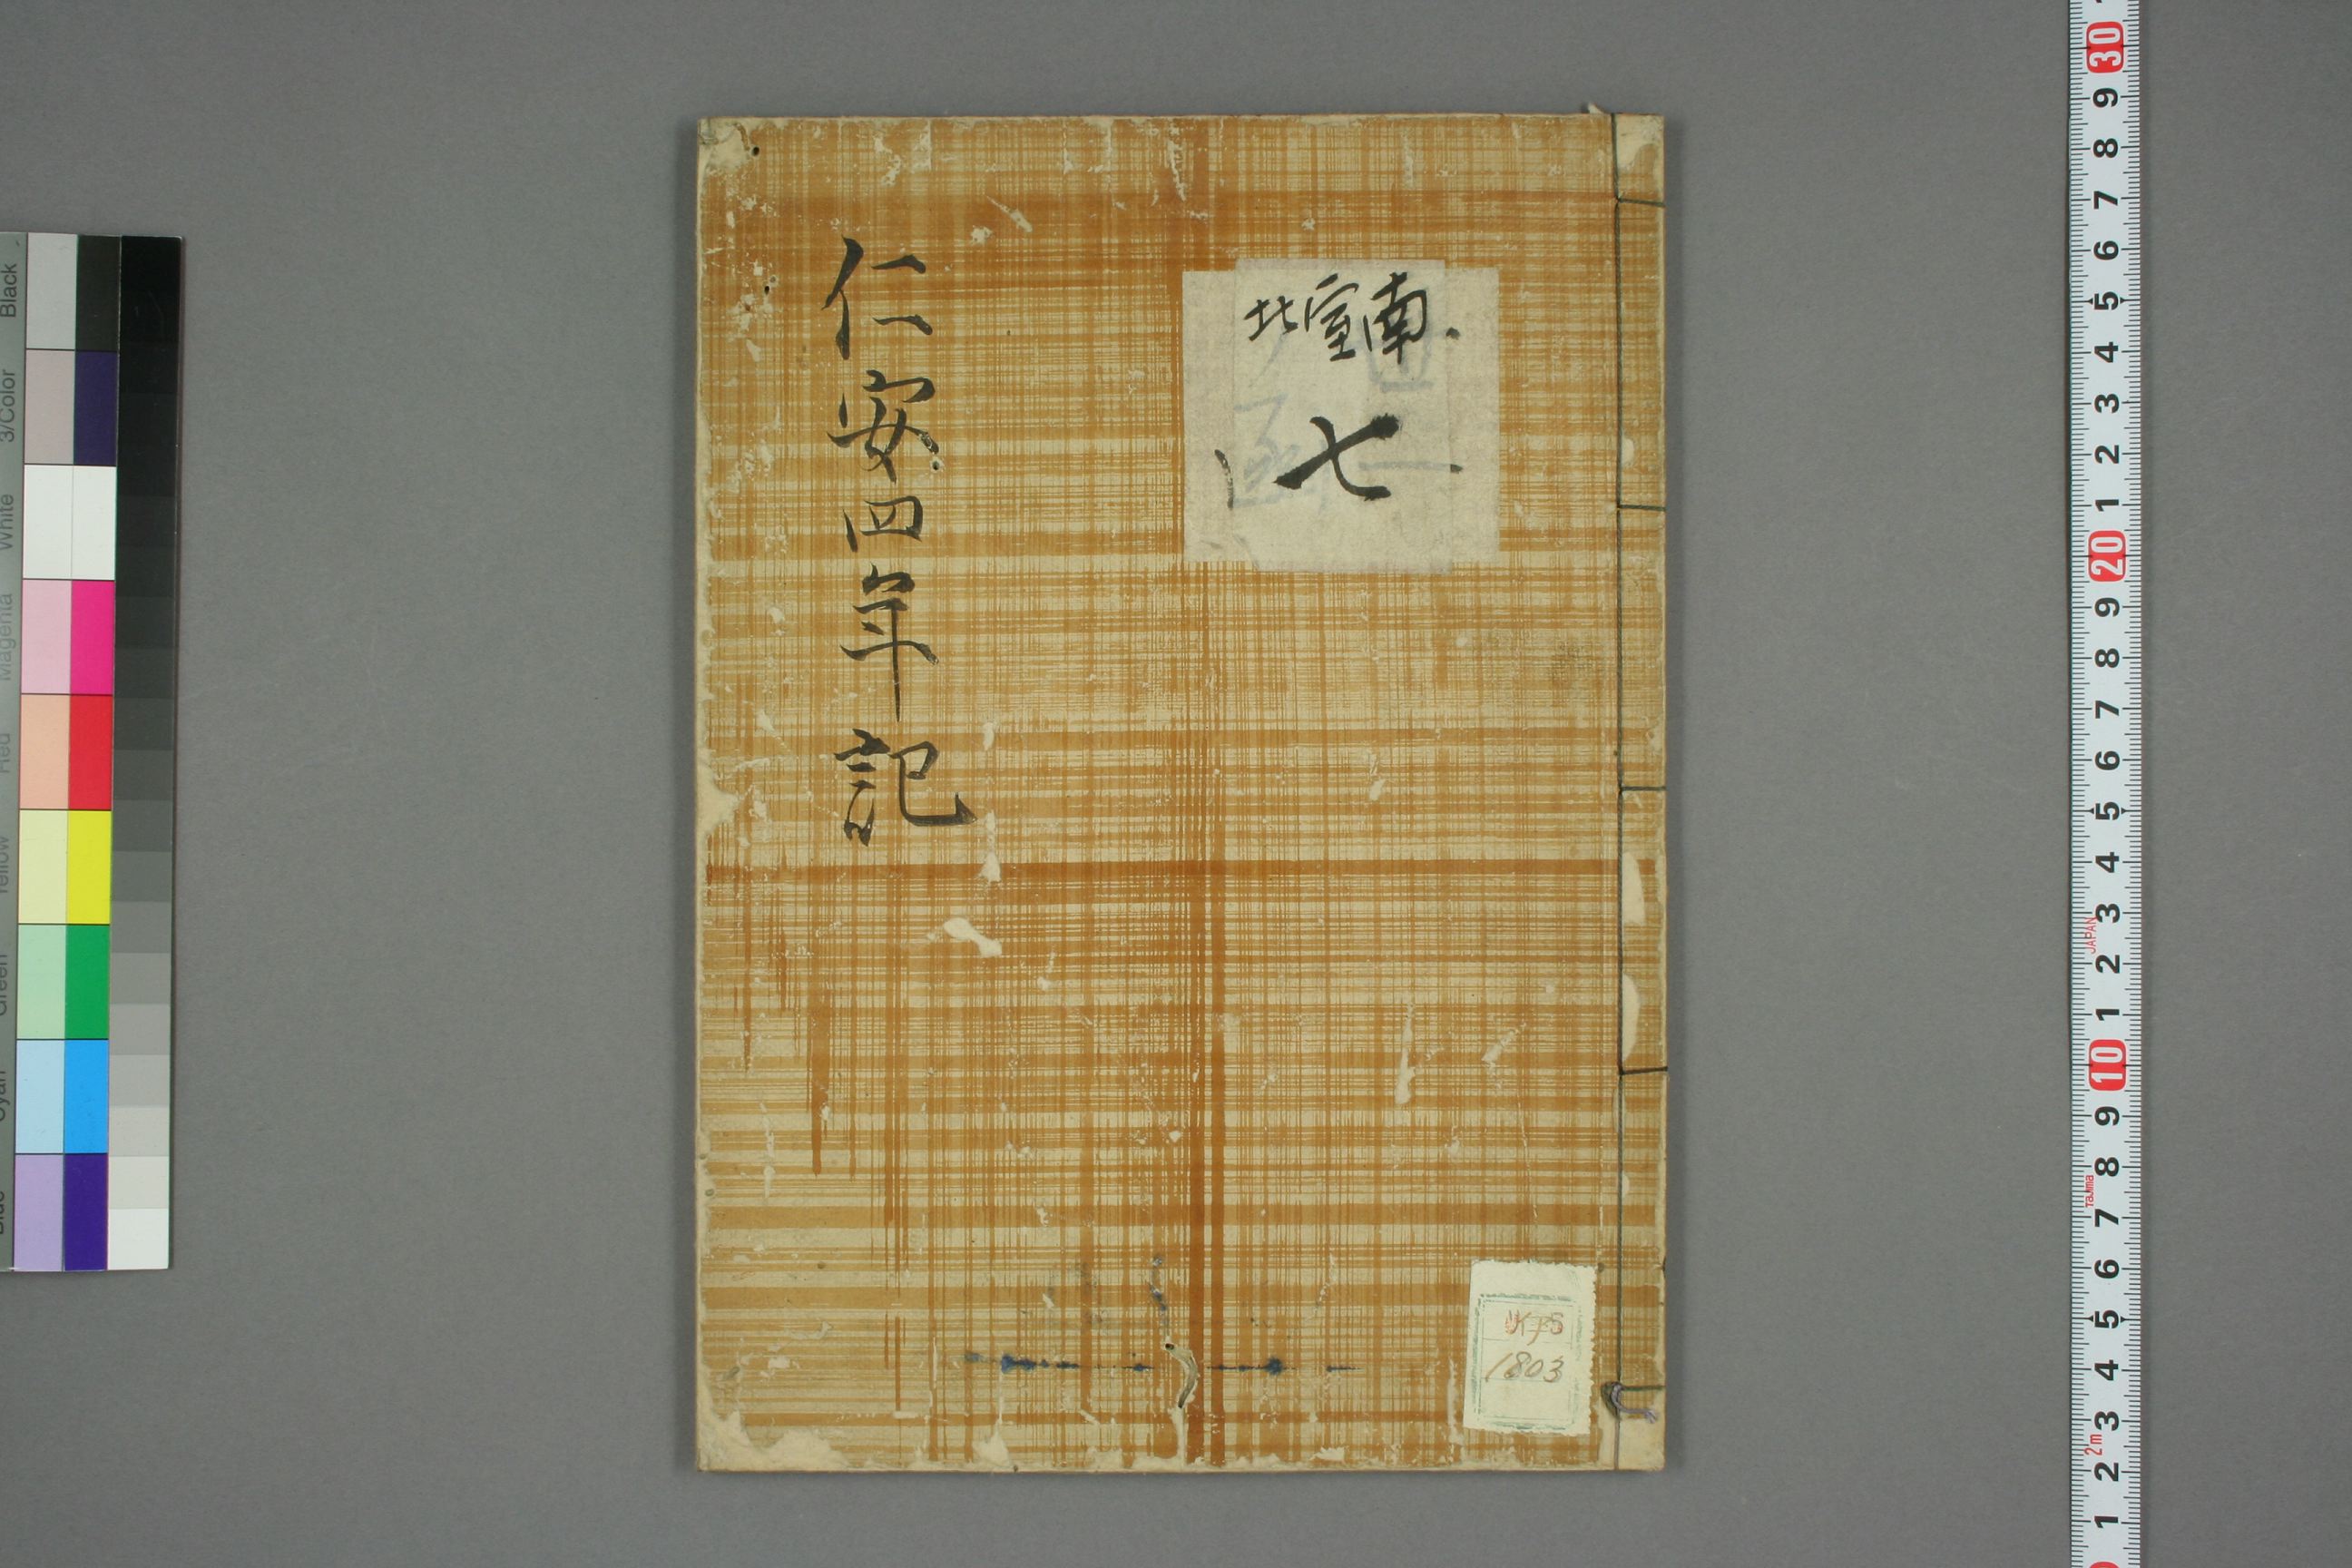 南室北
七
仁安四年記
1803
30
9
8
7
6
5
4
3
2
1
20
9
8
7
6
5
4
3
JAPAN
2
1
10
9
8
Tajima
7
6
5
4
3
2m
2
1
Black
3/Color
White
Magenta
Red
Yellow
Green
Cyan
Blue